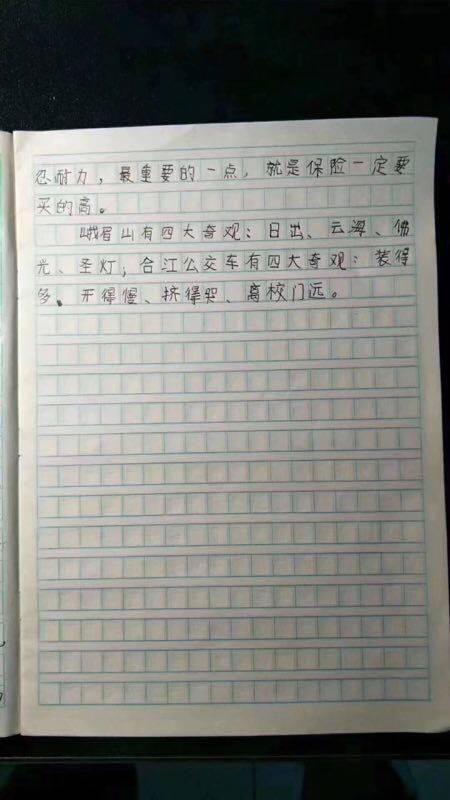 忍耐力，最重要的一点，就是保险一定要
买的高。
峨眉山有四大奇观：日出、云海、佛
光、圣灯，合江公交车有四大奇观：装得
多、开得慢、挤得哭、离校门远。